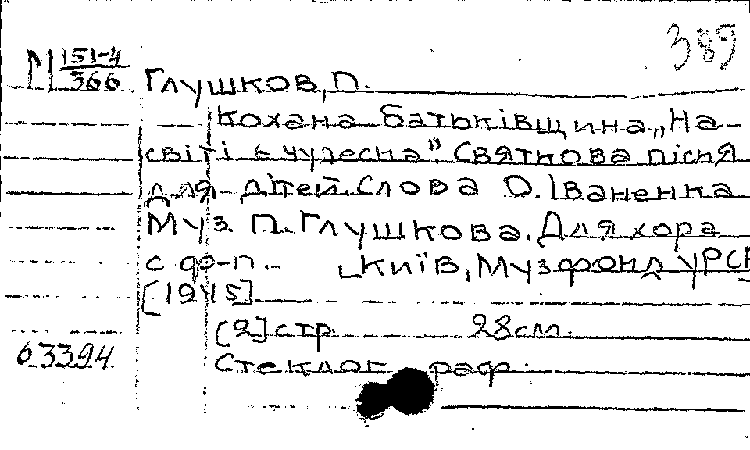 389
М 151-4
566
Глушков, П.
Кохана батьківщина „На
світі є чудесна“. Святкова пісня
для дітей. Слова О. Іваненка
Муз. П. Глушкова. Для хора
с ф-п. Київ, Музфонд УРСР
[1945]
[2] стр. 28 см.
63394
Стеклограф.